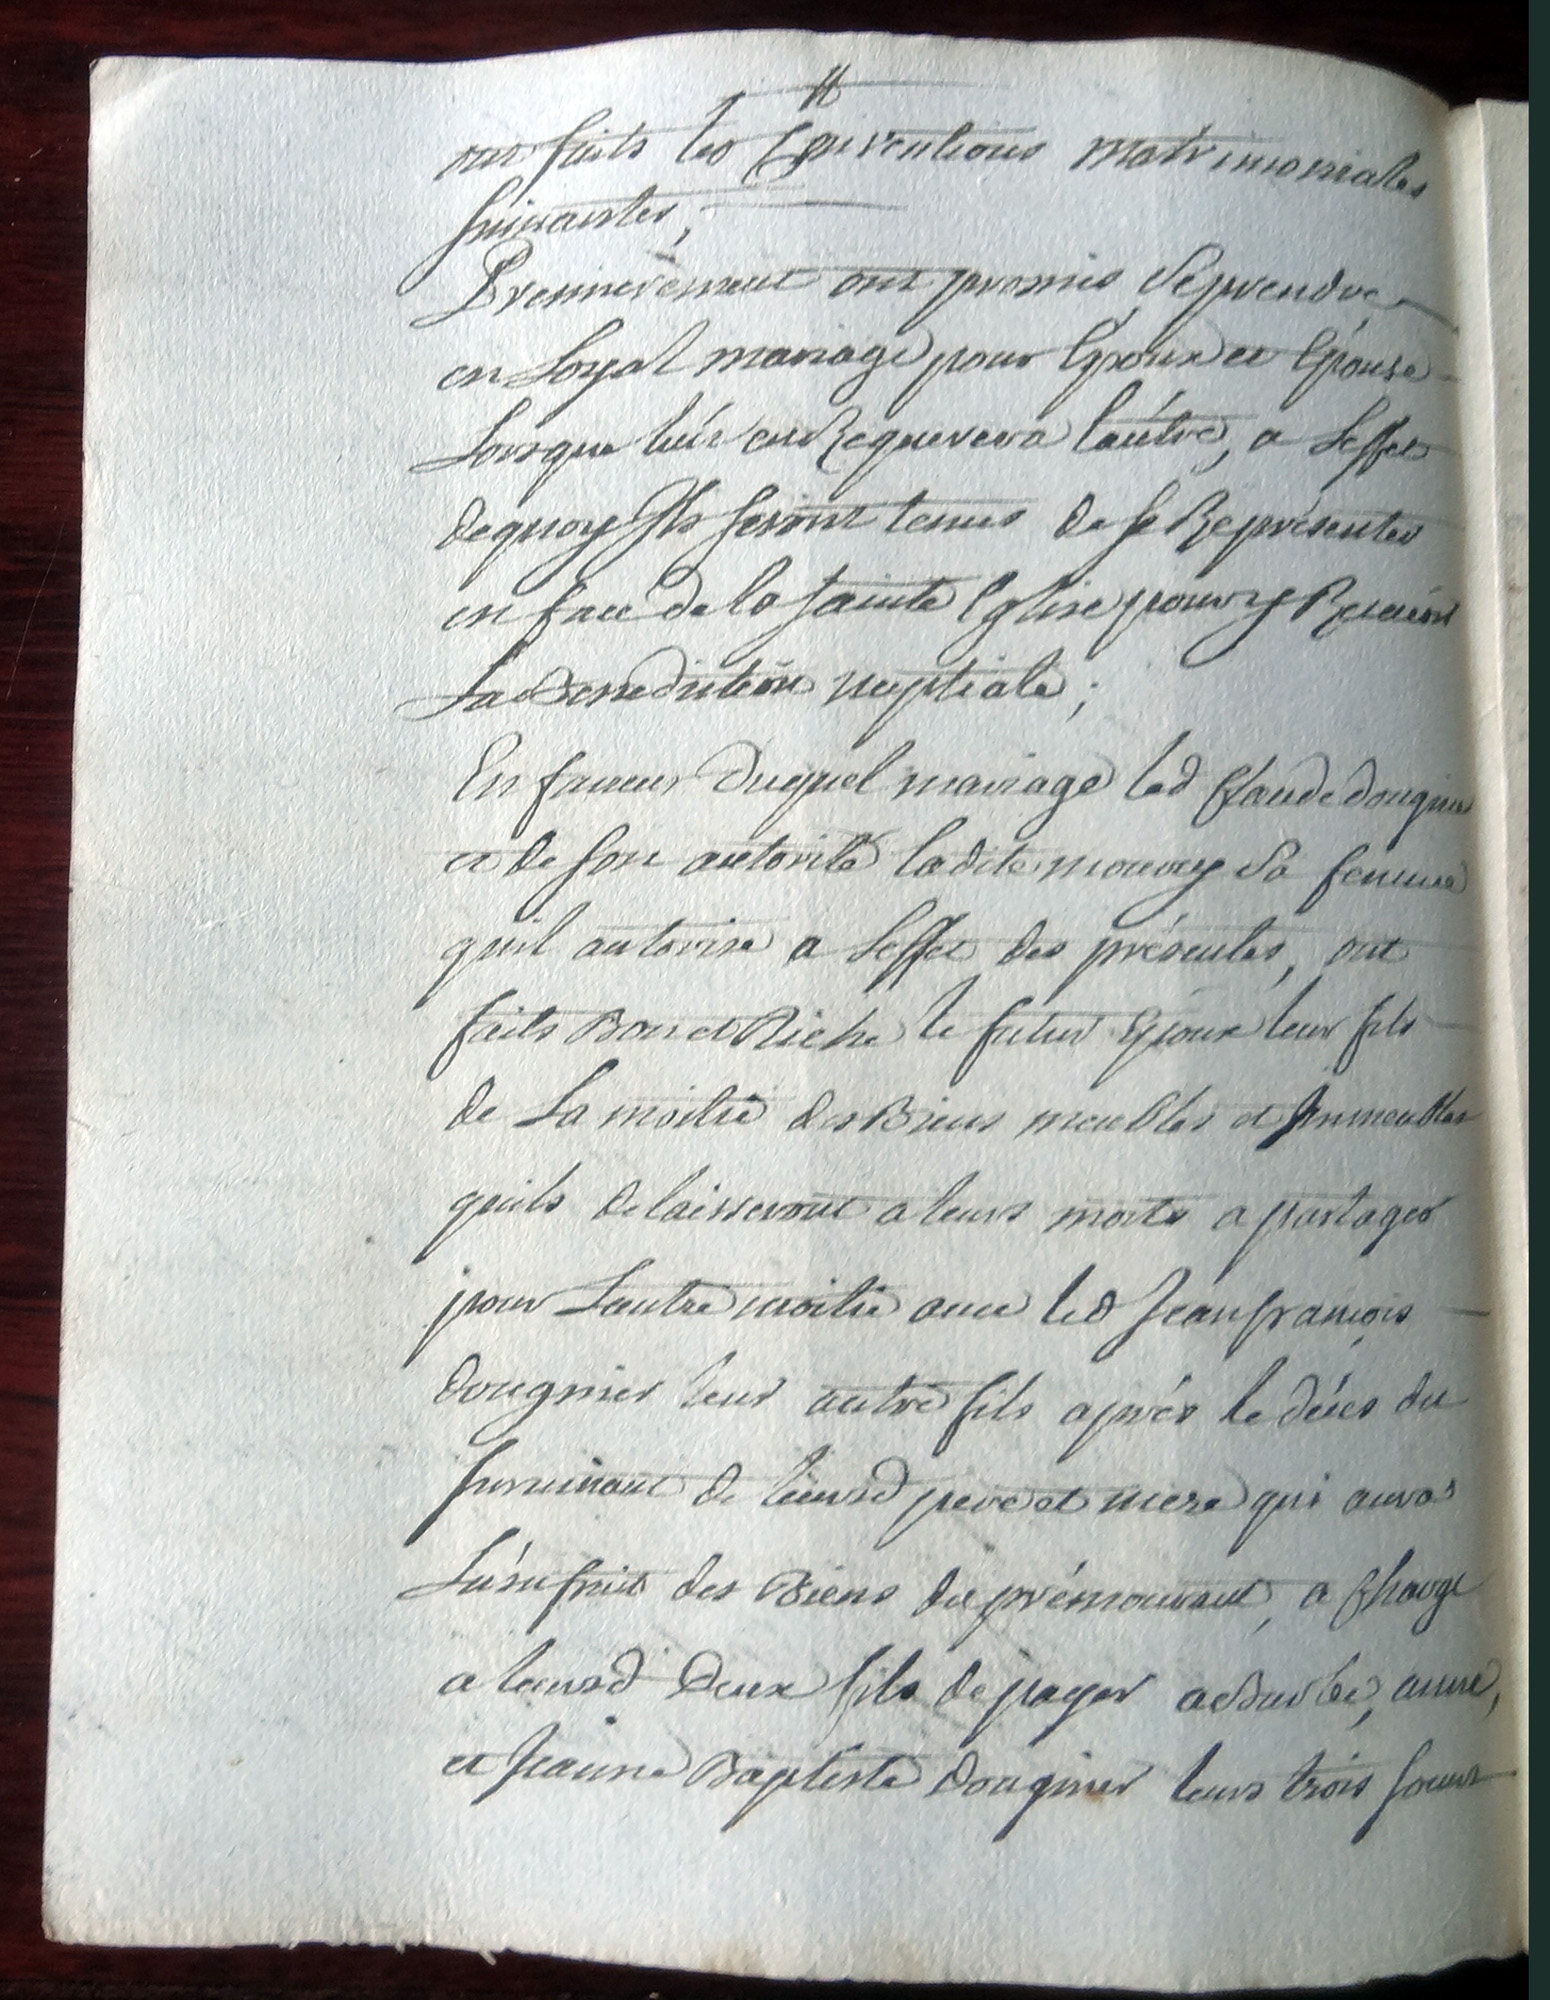 ont faits les Conventions Matrimoniales
suivantes;
Premierement ont promis se prendre
en Loyal mariage pour Epoux et Epouse
Lorsque lún en Requerera laútre, a Leffet
dequoy Ils seront tenus de se Représenter
en face de la sainte Eglise pour y Recevoir
La Benediction nuptiale;
En faveur duquel mariage led Claude dougnier
et de son autorité ladite mourey sa femme
quil autorise a Leffet des présentes, ont
faits Bon et Riche le futur Epoux leur fils
de La moitié des Biens meubles et Immeubles
quils delaisseront a leurs morts a partager
pour Lautre moitié avec led Jean françois
dougnier leur autre fils aprés le décés du
survivant de leursd pere et mere qui aura
Lúsufruit des Biens du prémourant, a Charge
a leursd Deux fils de payer a Barbe, anne,
et Jeanne Baptiste dougnier leurs trois soeurs